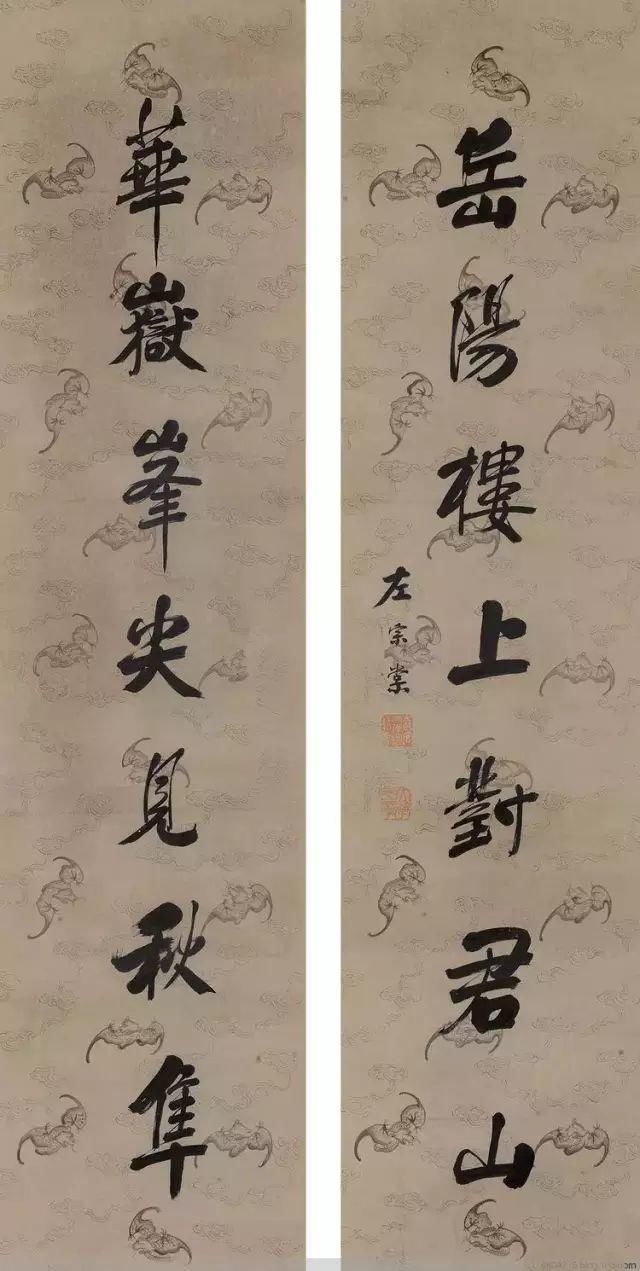 華嶽峯尖見秋隼
岳陽樓上對君山
左宗棠